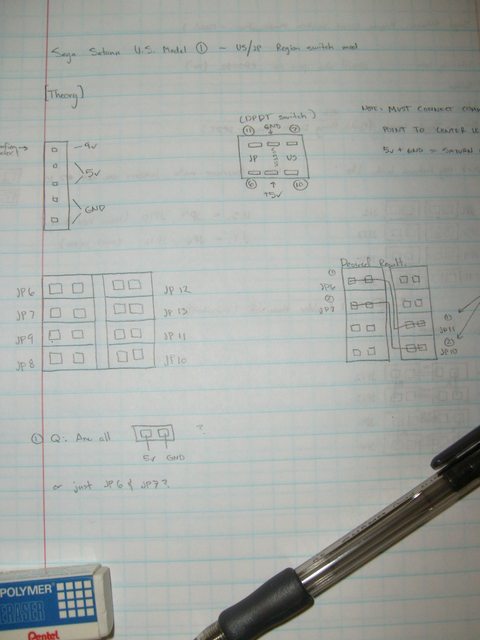 Sega Saturn U.S. Model ① - US/JP Region switch mod
[Theory]
(DPDT switch)
NOTE: MUST CONNECT
POINT TO CENTER
5v + GND = SATURN
9v
5v
GND
⑪ GND ⑦
JP US
⑥ ↑ ⑩
+5v
JP6 JP12
JP7 JP13
JP9 JP11
JP8 JP10
Desired Result:
①
JP6
②
JP7
①
JP11
②
JP10
① Q: Are all ?
5v GND
or just JP6 & JP7?
POLYMER
ERASER
Pentel